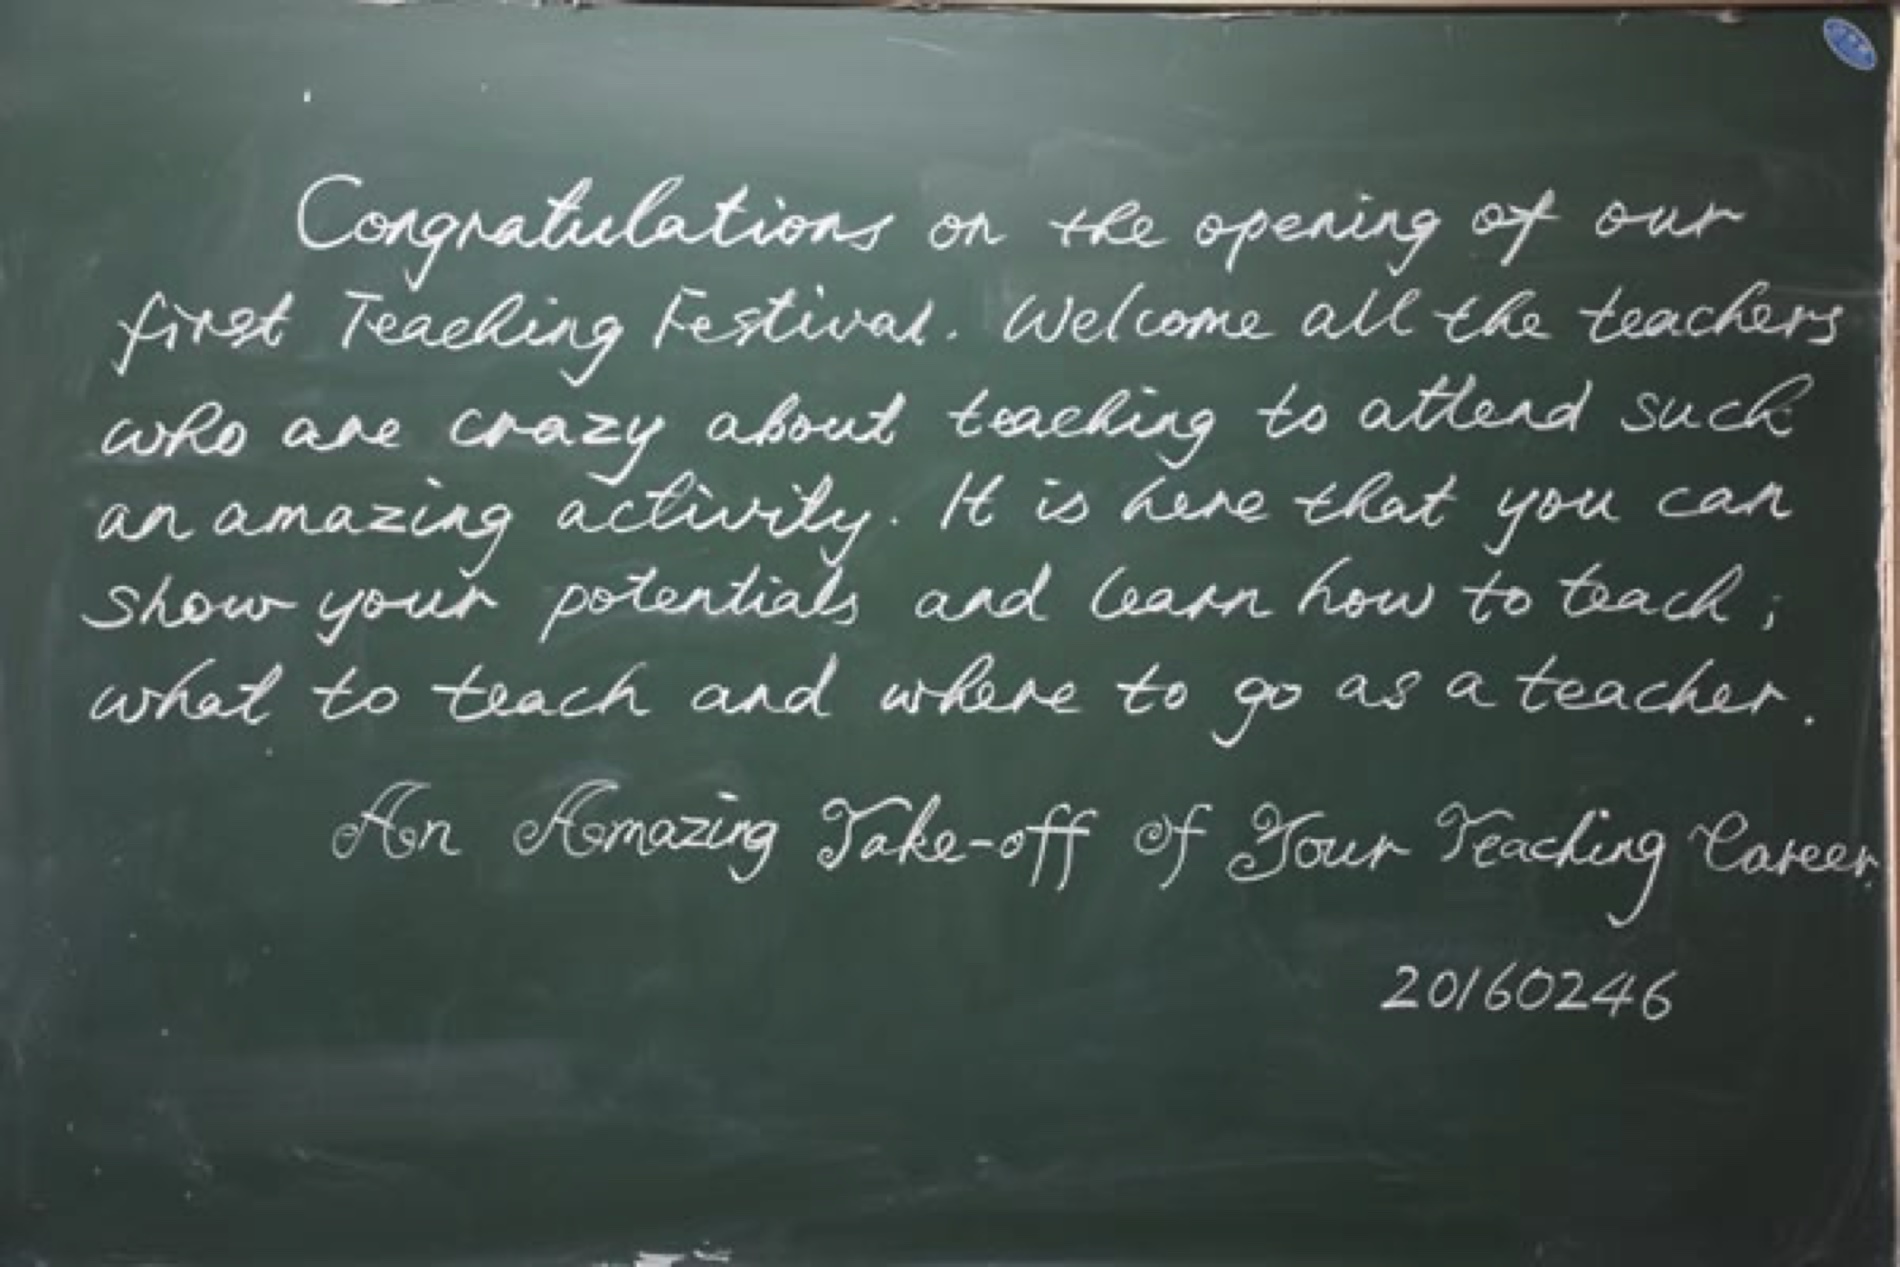 Congratulations on the opening of our
first Teaching Festival. Welcome all the teachers
who are crazy about teaching to attend such
an amazing activity. It is here that you can
show your potentials and learn how to teach;
what to teach and where to go as a teacher.
An Amazing Take-off of Your Teaching Career.
20160246